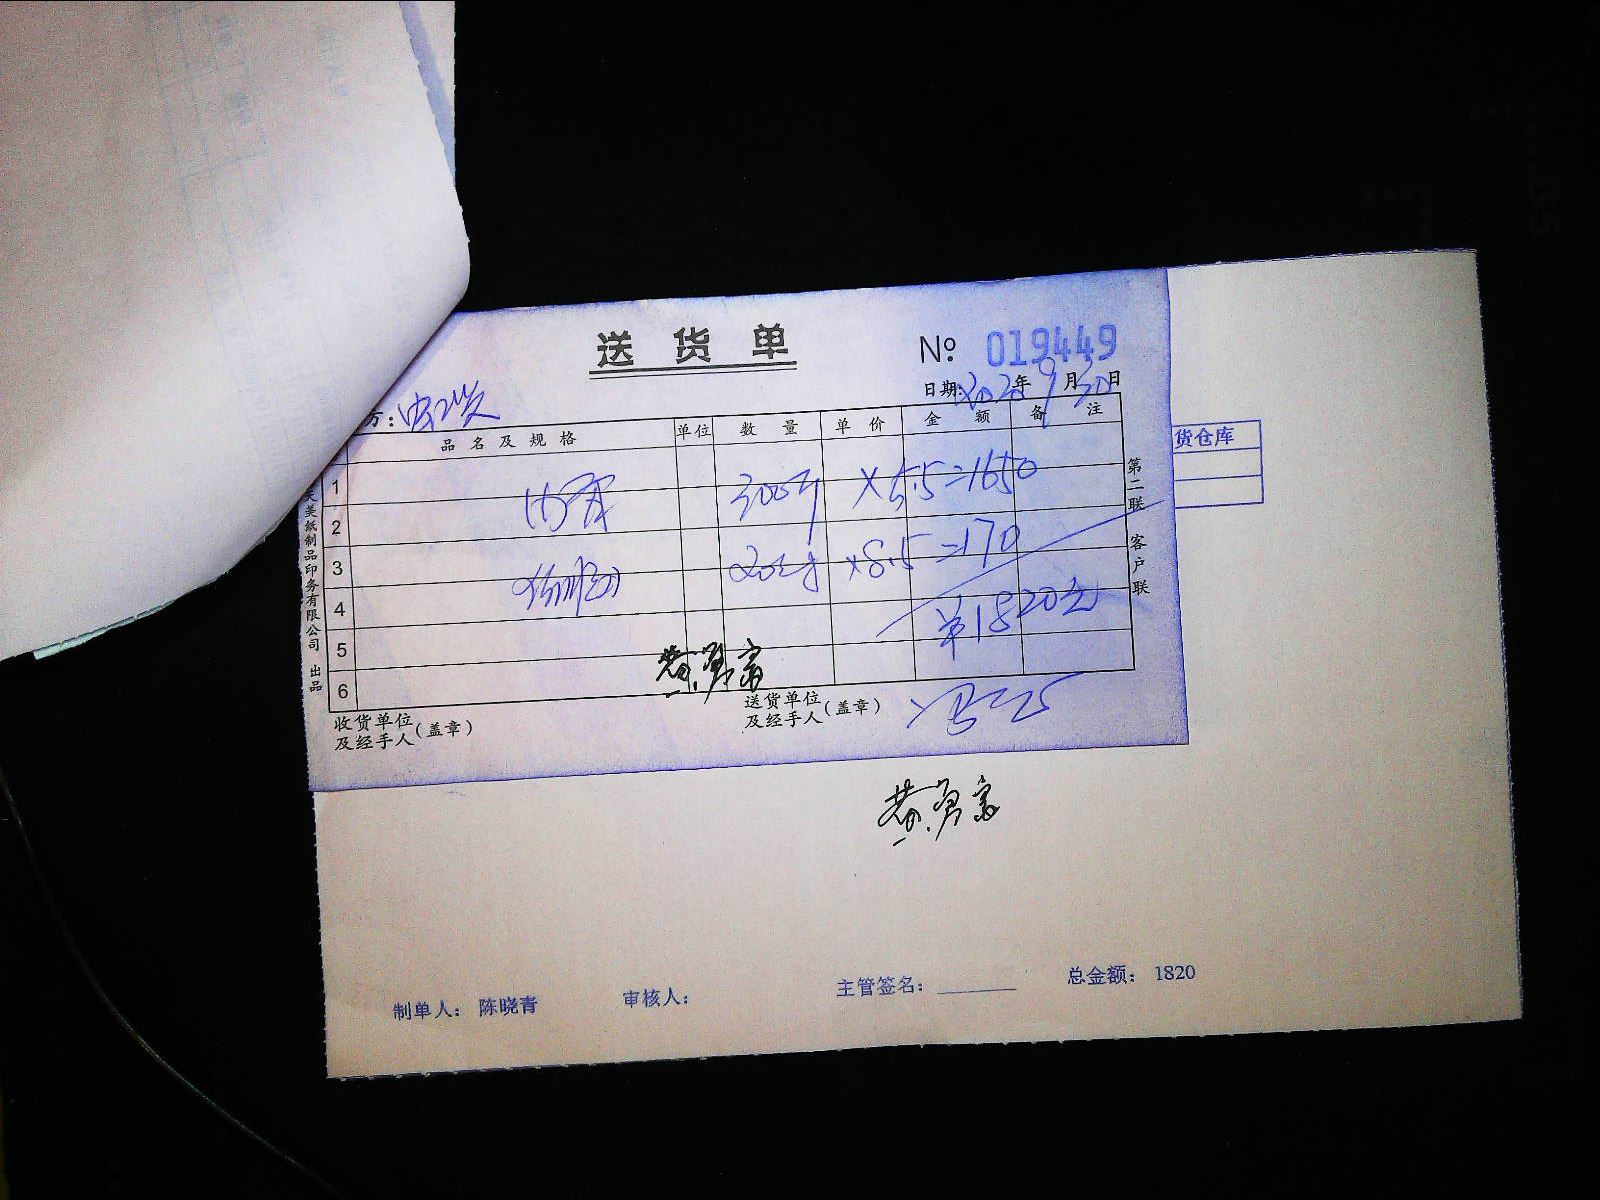 送货单
No: 019449
日期: 2020年9月30日
方:
品名及规格 单位 数量 单价 金额 备注
1
2 300斤 ×5.5=1650
3
4 20斤 ×8.5=170
5 ¥1820元
6
黄勇富
收货单位及经手人(盖章)
送货单位及经手人(盖章)
美纸制品印务有限公司 出品
第二联 客户联
货仓库
黄勇富
制单人: 陈晓青 审核人: 主管签名: 总金额: 1820